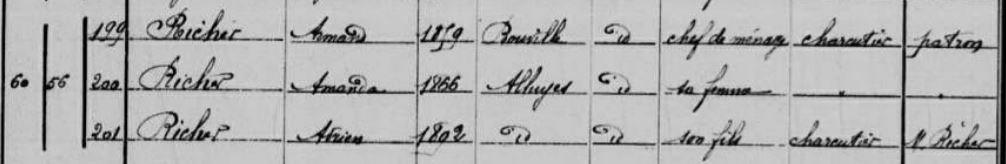 199 Richer Armand 1859 Bouville id chef de ménage charcutier patron
60 56 200 Richer Amanda 1866 Alluyes id sa femme " "
201 Richer Adrien 1892 id id son fils charcutier M. Richer